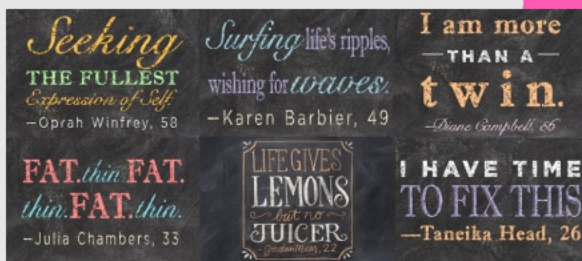 Seeking
THE FULLEST
Expression of Self.
—Oprah Winfrey, 58
Surfing life's ripples,
wishing for waves.
—Karen Barbier, 49
I am more
—THAN A—
twin.
—Diane Campbell, 66
FAT. thin. FAT.
thin. FAT. thin.
—Julia Chambers, 33
LIFE GIVES
LEMONS
but no
JUICER
—Jordan Meer, 22
I HAVE TIME
TO FIX THIS
—Taneika Head, 26